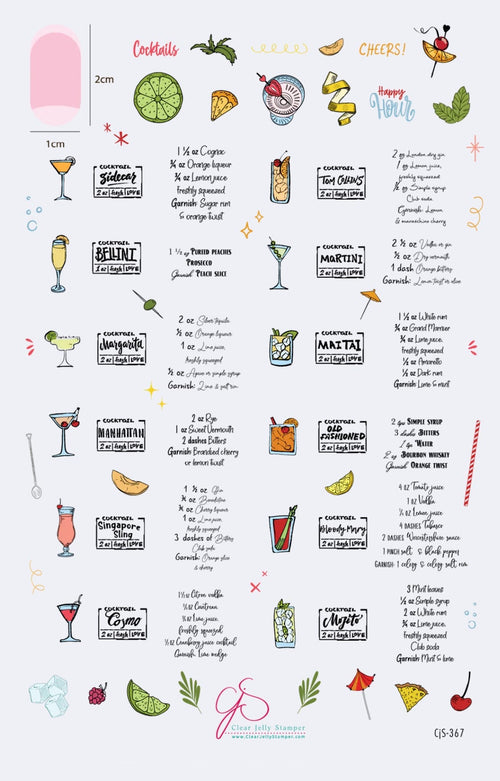 Cocktails
CHEERS!
2cm
Happy
Hour
1cm
COCKTAIL
Sidecar
2 oz | fresh | LOVE
1 ½ oz Cognac
¾ oz Orange liqueur
¾ oz Lemon juice
freshly squeezed
Garnish: Sugar rum
& orange twist
COCKTAIL
TOM COLLINS
2 oz | fresh | LOVE
2 oz London dry gin
1 oz Lemon juice,
freshly squeezed
½ oz Simple syrup
Club soda
Garnish: Lemon
& maraschino cherry
COCKTAIL
BELLINI
2 oz | fresh | LOVE
1 ½ oz PUREED PEACHES
PROSECCO
Garnish: PEACH SLICE
COCKTAIL
MARTINI
2 oz | fresh | LOVE
2 ½ oz Vodka or gin
½ oz Dry vermouth
1 dash Orange bitters
Garnish: Lemon twist or olive
COCKTAIL
Margarita
2 oz | fresh | LOVE
2 oz Silver tequila
½ oz Orange liqueur
1 oz Lime juice,
freshly squeezed
½ oz Agave or simple syrup
Garnish: Lime & salt rim
COCKTAIL
MAI TAI
2 oz | fresh | LOVE
1 ½ oz White rum
¾ oz Grand Marnier
¾ oz Lime juice,
freshly squeezed
½ oz Amaretto
½ oz Dark rum
Garnish: Lime & mint
COCKTAIL
MANHATTAN
2 oz | fresh | LOVE
2 oz Rye
1 oz Sweet Vermouth
2 dashes Bitters
Garnish: Brandied cherry
or lemon twist
COCKTAIL
OLD
FASHIONED
2 oz | fresh | LOVE
2 tsp SIMPLE SYRUP
3 dashes BITTERS
1 tsp WATER
2 oz BOURBON WHISKEY
Garnish: ORANGE TWIST
COCKTAIL
Singapore
Sling
2 oz | fresh | LOVE
1 ½ oz Gin
¾ oz Benedictine
¾ oz Cherry liqueur
1 oz Lime juice,
freshly squeezed
3 dashes of Bitters
Club soda
Garnish: Orange slice
& cherry
COCKTAIL
Bloody Mary
2 oz | fresh | LOVE
4 oz Tomato juice
1 oz Vodka
½ oz Lemon juice
4 DASHES Tabasco
2 DASHES Worcestershire sauce
1 PINCH salt & black pepper
GARNISH: 1 celery & celery salt rim
COCKTAIL
Cosmo
2 oz | fresh | LOVE
1½ oz Citron vodka
¾ oz Cointreau
¾ oz Lime juice
freshly squeezed
½ oz Cranberry juice cocktail
Garnish: Lime wedge
COCKTAIL
Mojito
2 oz | fresh | LOVE
3 Mint leaves
½ oz Simple syrup
2 oz White rum
¾ oz Lime juice,
freshly squeezed
Club soda
Garnish: Mint & lime
CJS
Clear Jelly Stamper
www.ClearJellyStamper.com
CjS-367